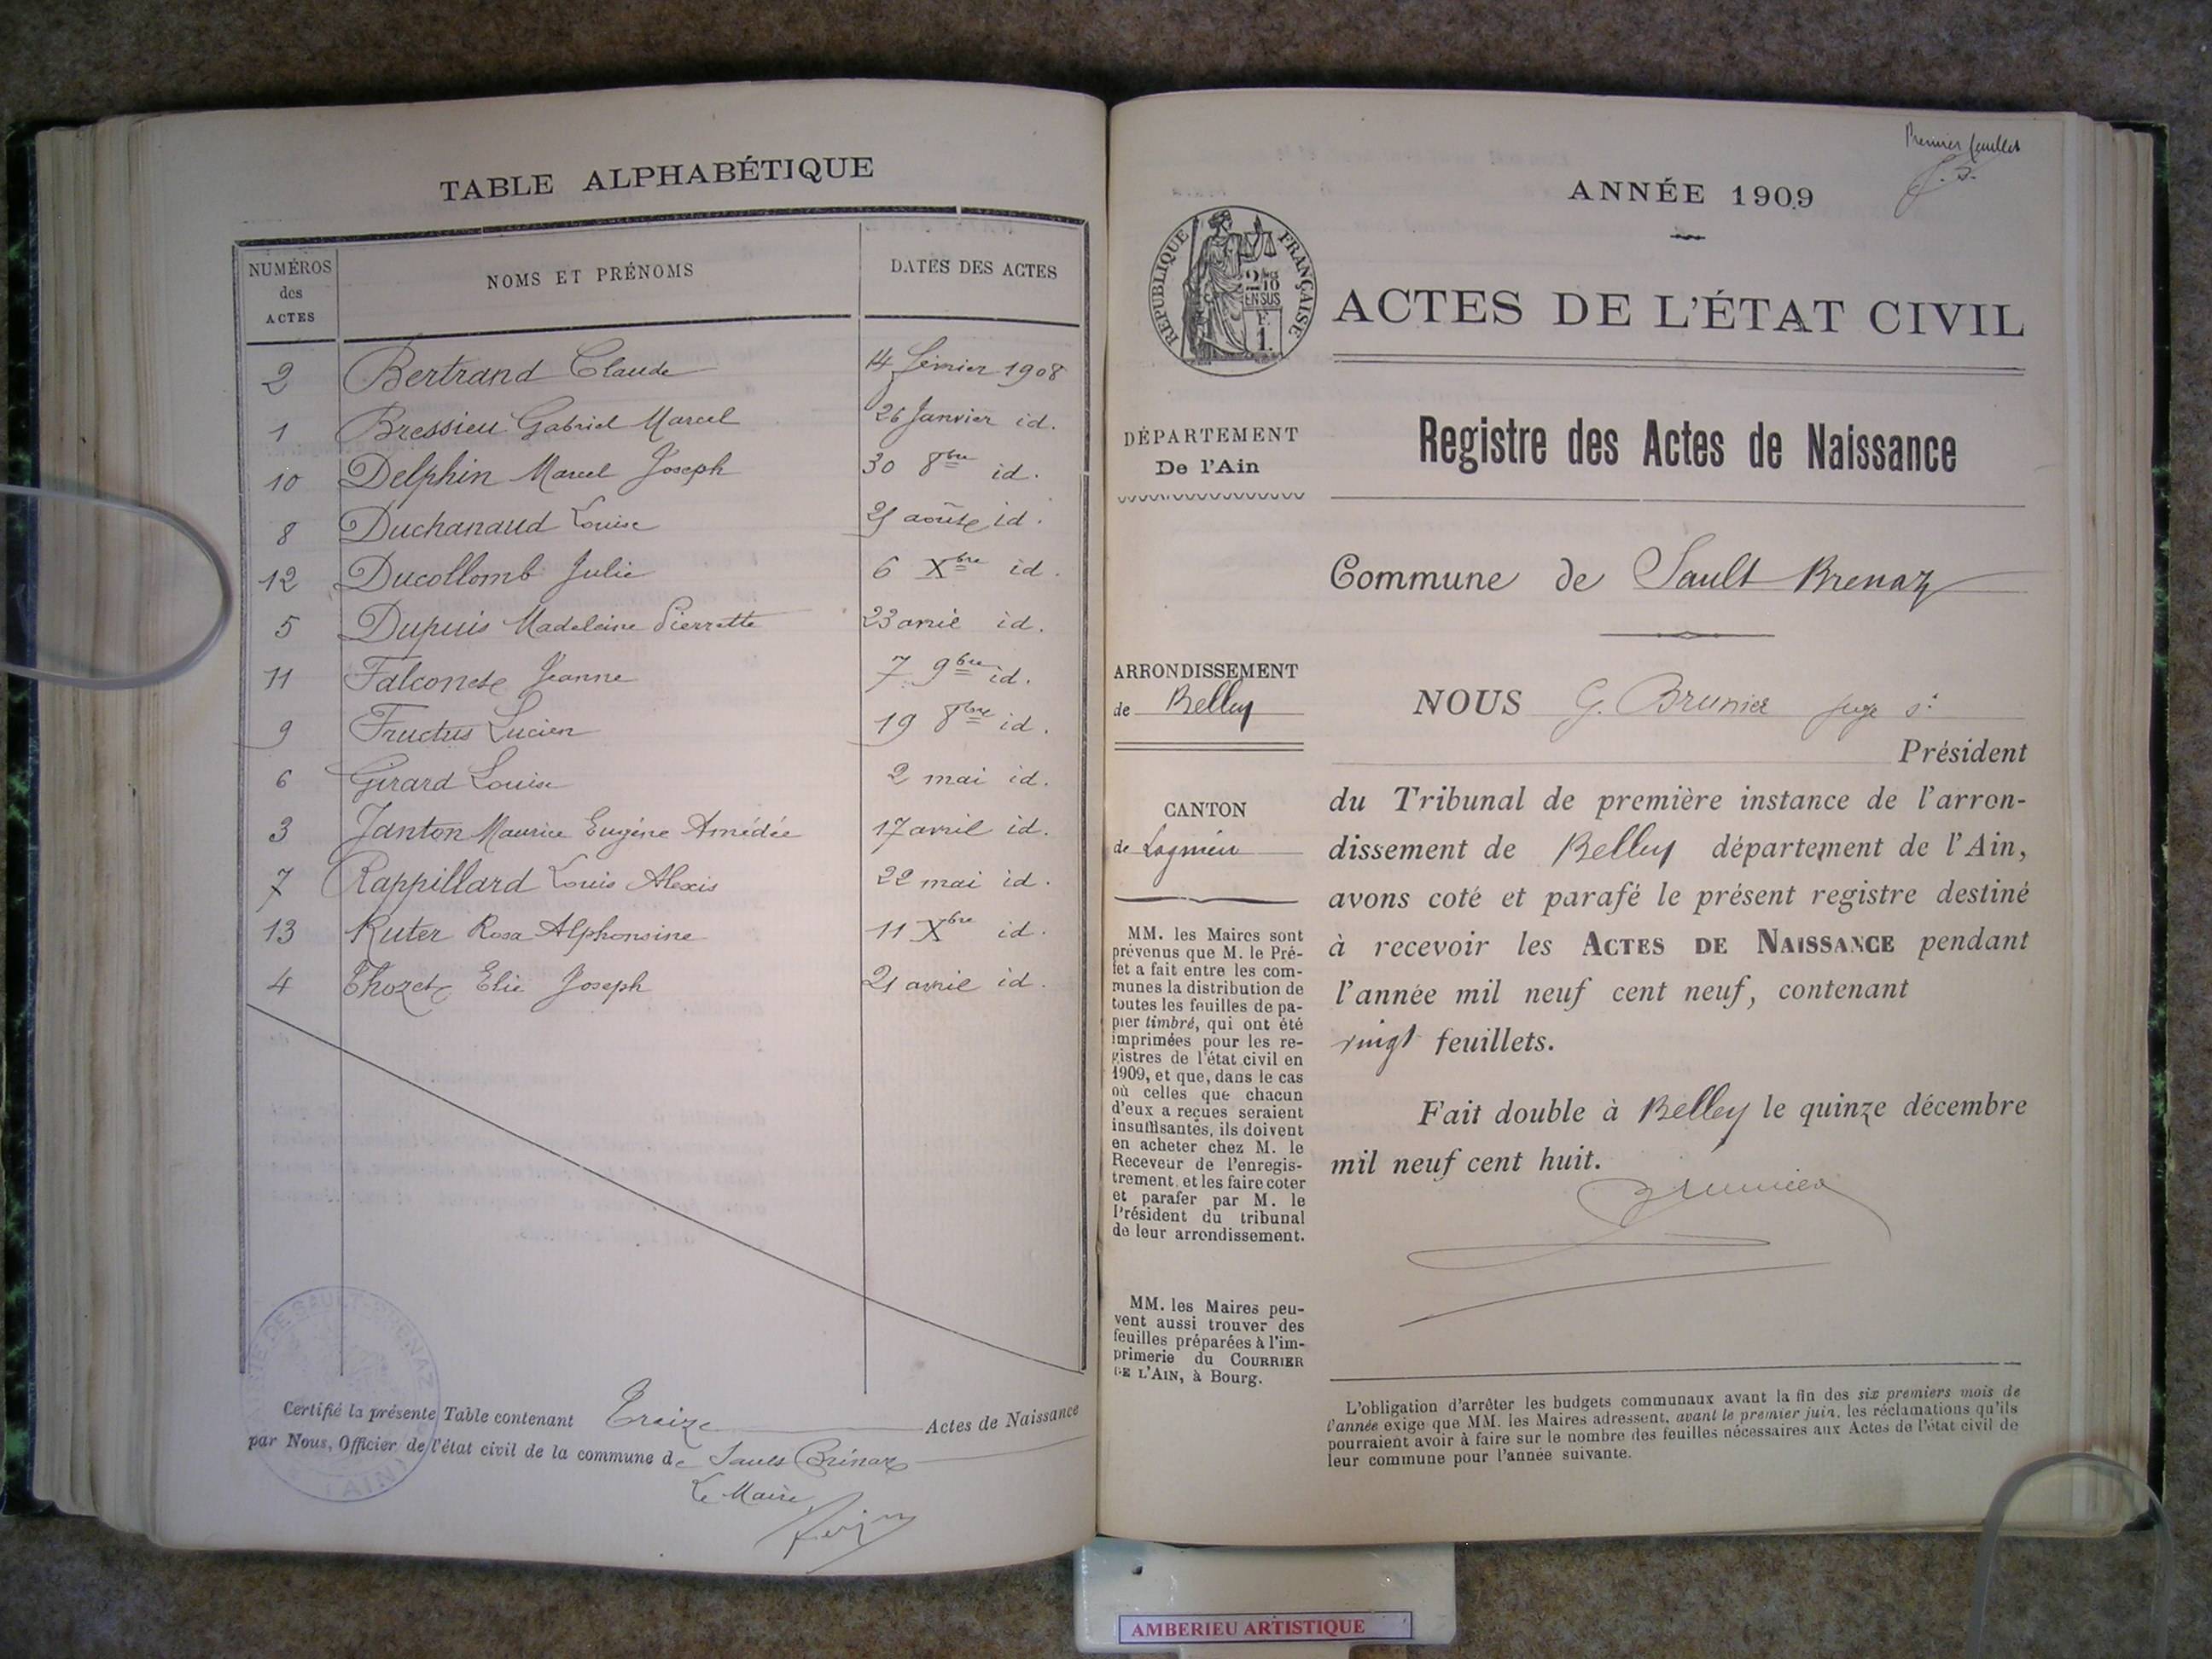 TABLE ALPHABÉTIQUE
NUMÉROS des ACTES
NOMS ET PRÉNOMS
DATES DES ACTES
2 Bertrand Claude 14 février 1908
1 Bressieu Gabriel Marcel 26 Janvier id.
10 Delphin Marcel Joseph 30 8bre id.
8 Duchanaud Louise 21 août id.
12 Ducollomb Julie 6 Xbre id.
5 Dupuis Madeleine Pierrette 23 avril id.
11 Falconet Jeanne 7 9bre id.
9 Fructus Lucien 19 8bre id.
6 Girard Louise 2 mai id.
3 Janton Maurice Eugène Amédée 17 avril id.
7 Rappillard Louis Alexis 22 mai id.
13 Ruter Rosa Alphonsine 11 Xbre id.
4 Thozet Elie Joseph 21 avril id.
Certifié la présente Table contenant Treize Actes de Naissance
par Nous, Officier de l'état civil de la commune de Sault Brénaz
Le Maire
Premier feuillet
ANNÉE 1909
RÉPUBLIQUE FRANÇAISE
2/10
EN SUS
F.
1.
ACTES DE L'ÉTAT CIVIL
DÉPARTEMENT
De l'Ain
Registre des Actes de Naissance
Commune de Sault Brenaz
ARRONDISSEMENT
de Belley
CANTON
de Lagnieu
MM. les Maires sont
prévenus que M. le Pré-
fet a fait entre les com-
munes la distribution de
toutes les feuilles de pa-
pier timbré, qui ont été
imprimées pour les re-
gistres de l'état civil en
1909, et que, dans le cas
où celles que chacun
d'eux a reçues seraient
insuffisantes, ils doivent
en acheter chez M. le
Receveur de l'enregis-
trement, et les faire coter
et parafer par M. le
Président du tribunal
de leur arrondissement.
MM. les Maires peu-
vent aussi trouver des
feuilles préparées à l'im-
primerie du COURRIER
DE L'AIN, à Bourg.
NOUS G. Brunier juge
Président
du Tribunal de première instance de l'arron-
dissement de Belley département de l'Ain,
avons coté et parafé le présent registre destiné
à recevoir les ACTES DE NAISSANCE pendant
l'année mil neuf cent neuf, contenant
vingt feuillets.
Fait double à Belley le quinze décembre
mil neuf cent huit.
Brunier
L'obligation d'arrêter les budgets communaux avant la fin des six premiers mois de
l'année exige que MM. les Maires adressent, avant le premier juin, les réclamations qu'ils
pourraient avoir à faire sur le nombre des feuilles nécessaires aux Actes de l'état civil de
leur commune pour l'année suivante.
AMBERIEU ARTISTIQUE